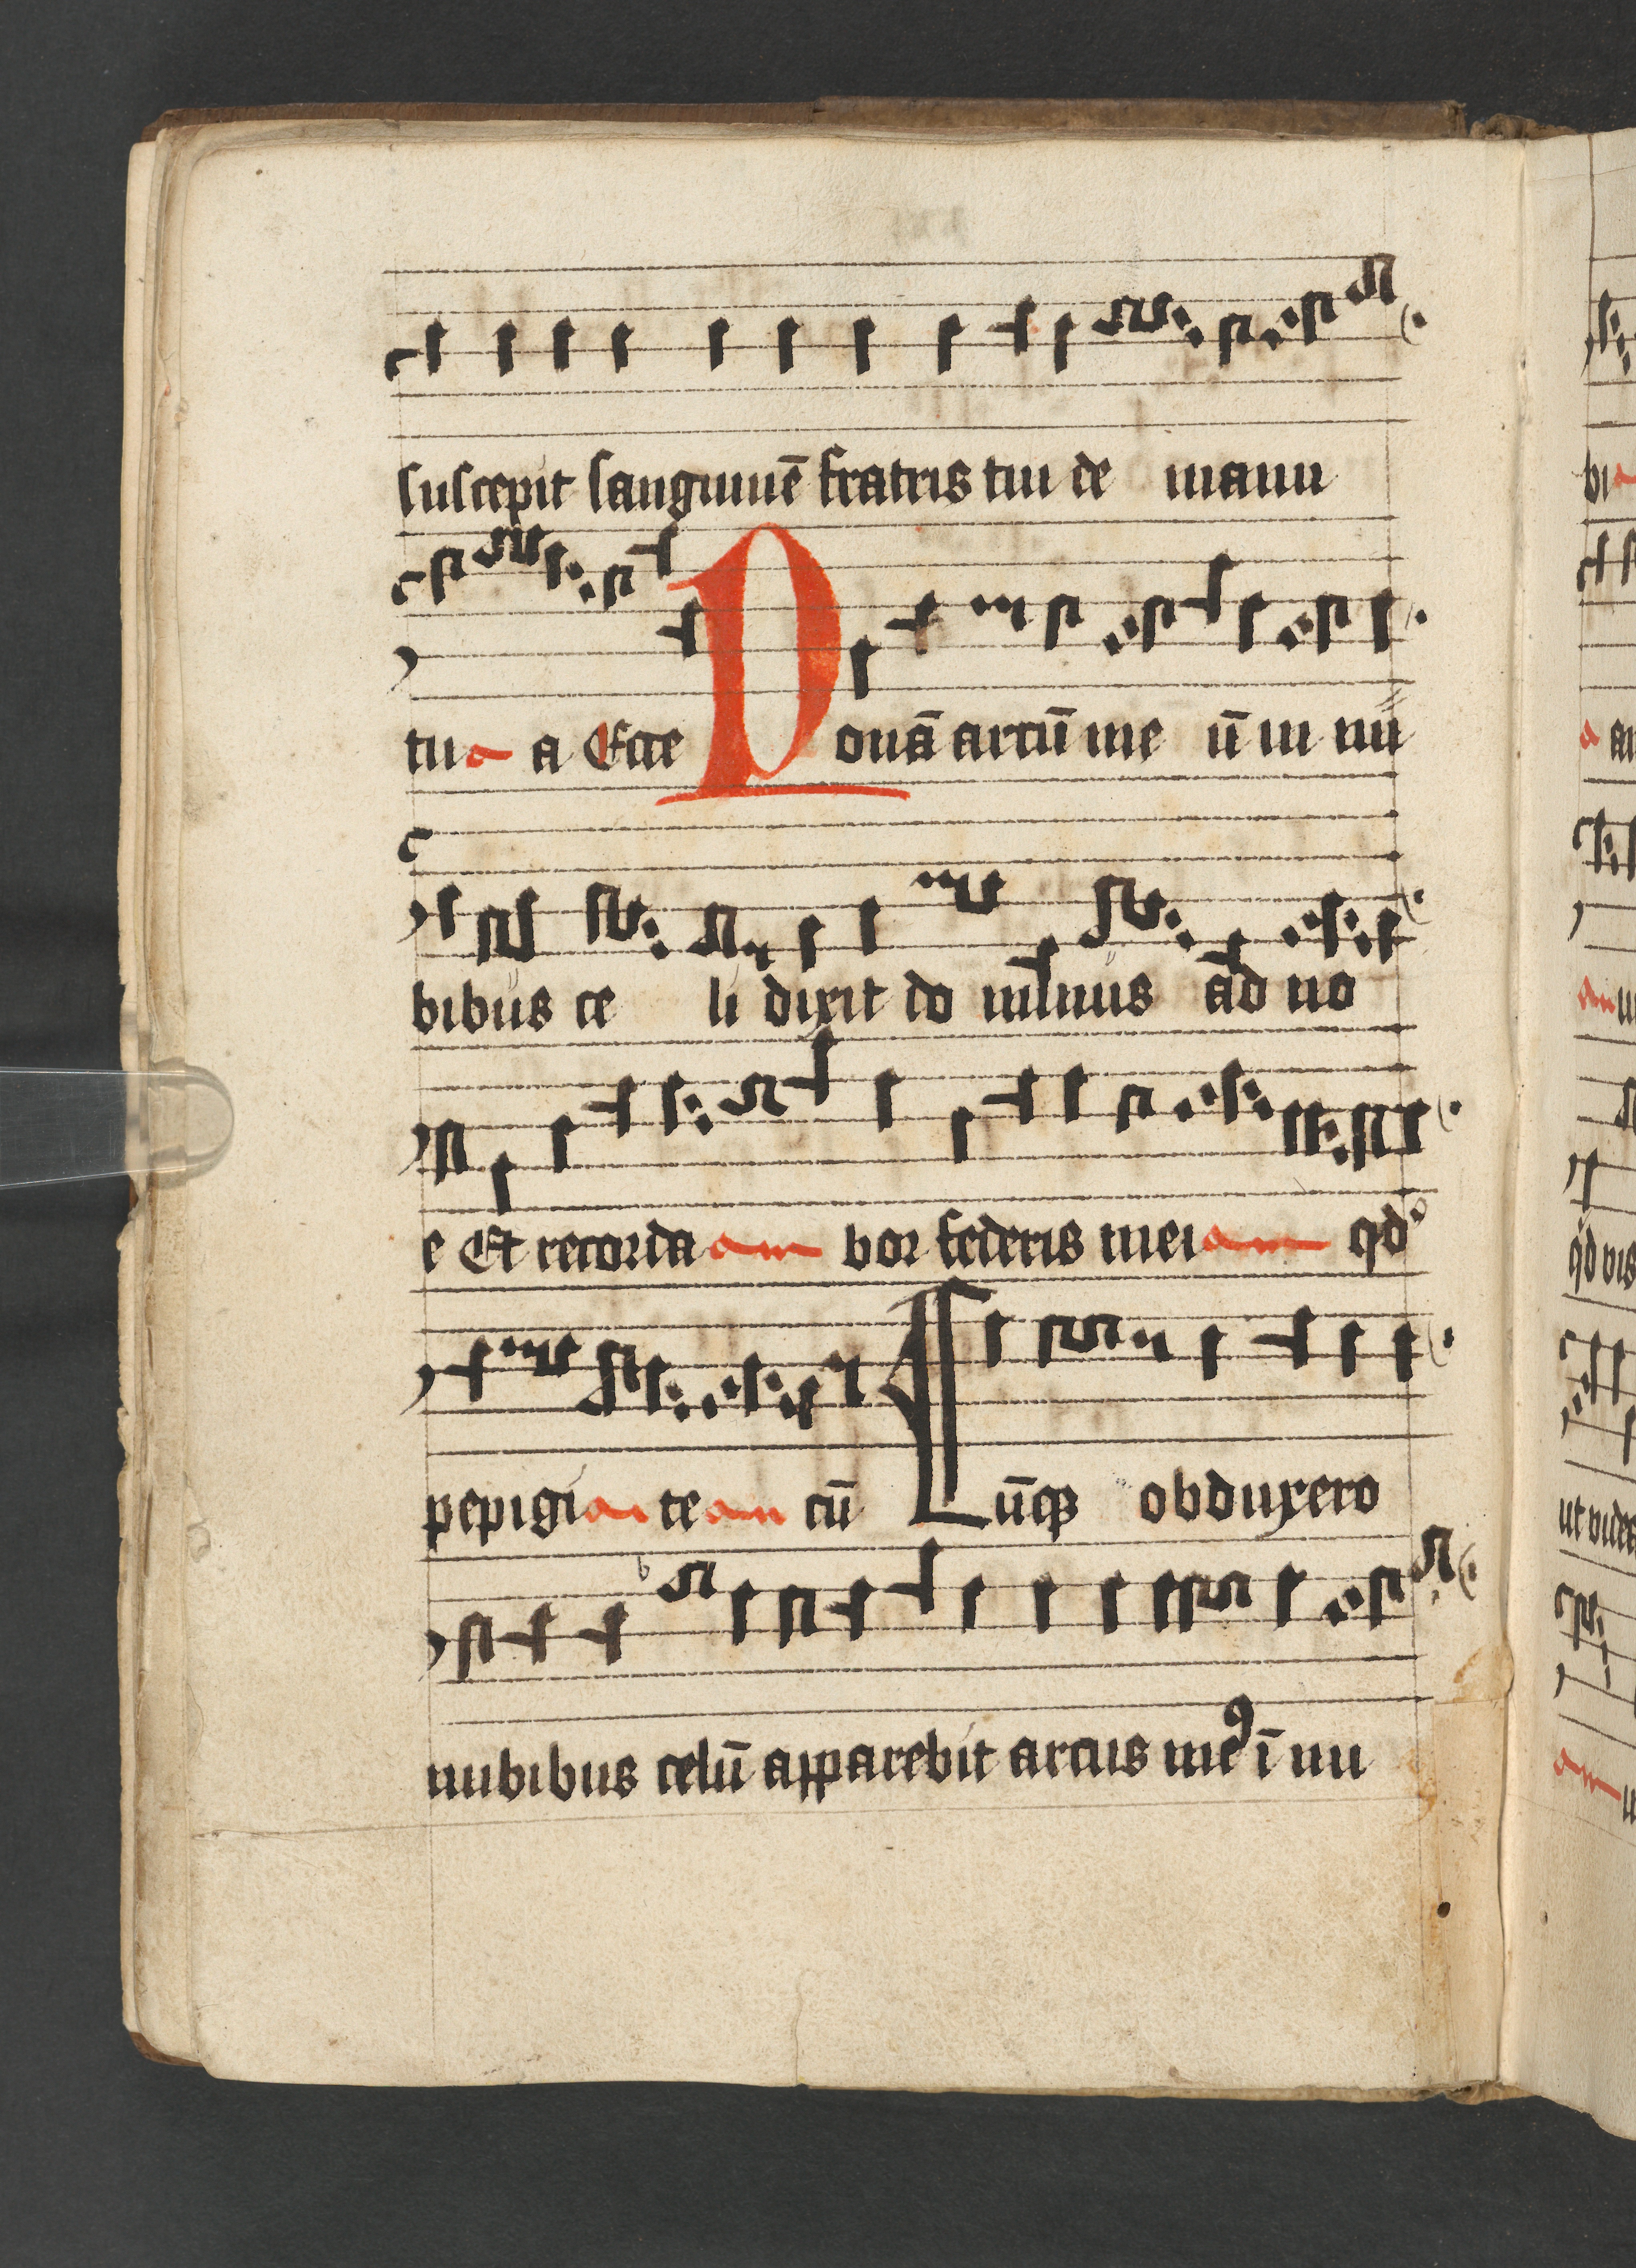 suscepit sanguinuē fratris tui de manu
tua a Ecce Ponā arcū me ū in nu
bibus ce li dixit do minus ad no
e Et recorda am bor federis mei am qd
pepigi ai te am cū Cūqꝫ obduxero
nubibus celū apparebit arcus meꝰ ī nu